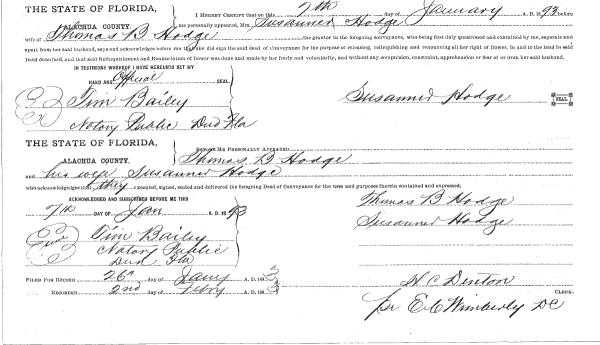 THE STATE OF FLORIDA, I HEREBY CERTIFY that on this 7th day of January 93 before
ALACHUA COUNTY. me personally appeared, Mrs. Susanner Hodge
wife of Thomas B Hodge the grantor in the foregoing conveyance, who being first duly questioned and examined by me, separate and
apart from her said husband, says and acknowledges before me that she did sign the said deed of Conveyance for the purpose of releasing, relinquishing and renouncing all her right of Dower, in and to the land in said
Deed described, and that said Relinquishment and Renunciation of Dower was done and made by her freely and voluntarily, and without any compulsion, constraint, apprehension or fear of or from her said husband.
IN TESTIMONY WHEREOF I HAVE HEREUNTO SET MY
HAND AND Official SEAL
Tim Bailey Susanner Hodge SEAL
Notary Public Dud Fla
THE STATE OF FLORIDA, BEFORE ME PERSONALLY APPEARED
ALACHUA COUNTY. Thomas B Hodge
and his wife Susanner Hodge
who acknowledges that they executed, signed, sealed and delivered the foregoing Deed of Conveyance for the uses and purposes therein contained and expressed.
ACKNOWLEDGED AND SUBSCRIBED BEFORE ME THIS Thomas B Hodge
7th DAY OF Jan A. D. 1893 Susanner Hodge
Tim Bailey
Notary Public
Dud, Fla
FILED FOR RECORD 26" day of Jany A. D. 1893 H C Denton
RECORDED 2nd day of Feby A. D. 1893 CLERK.
pr E C Wimberly DC